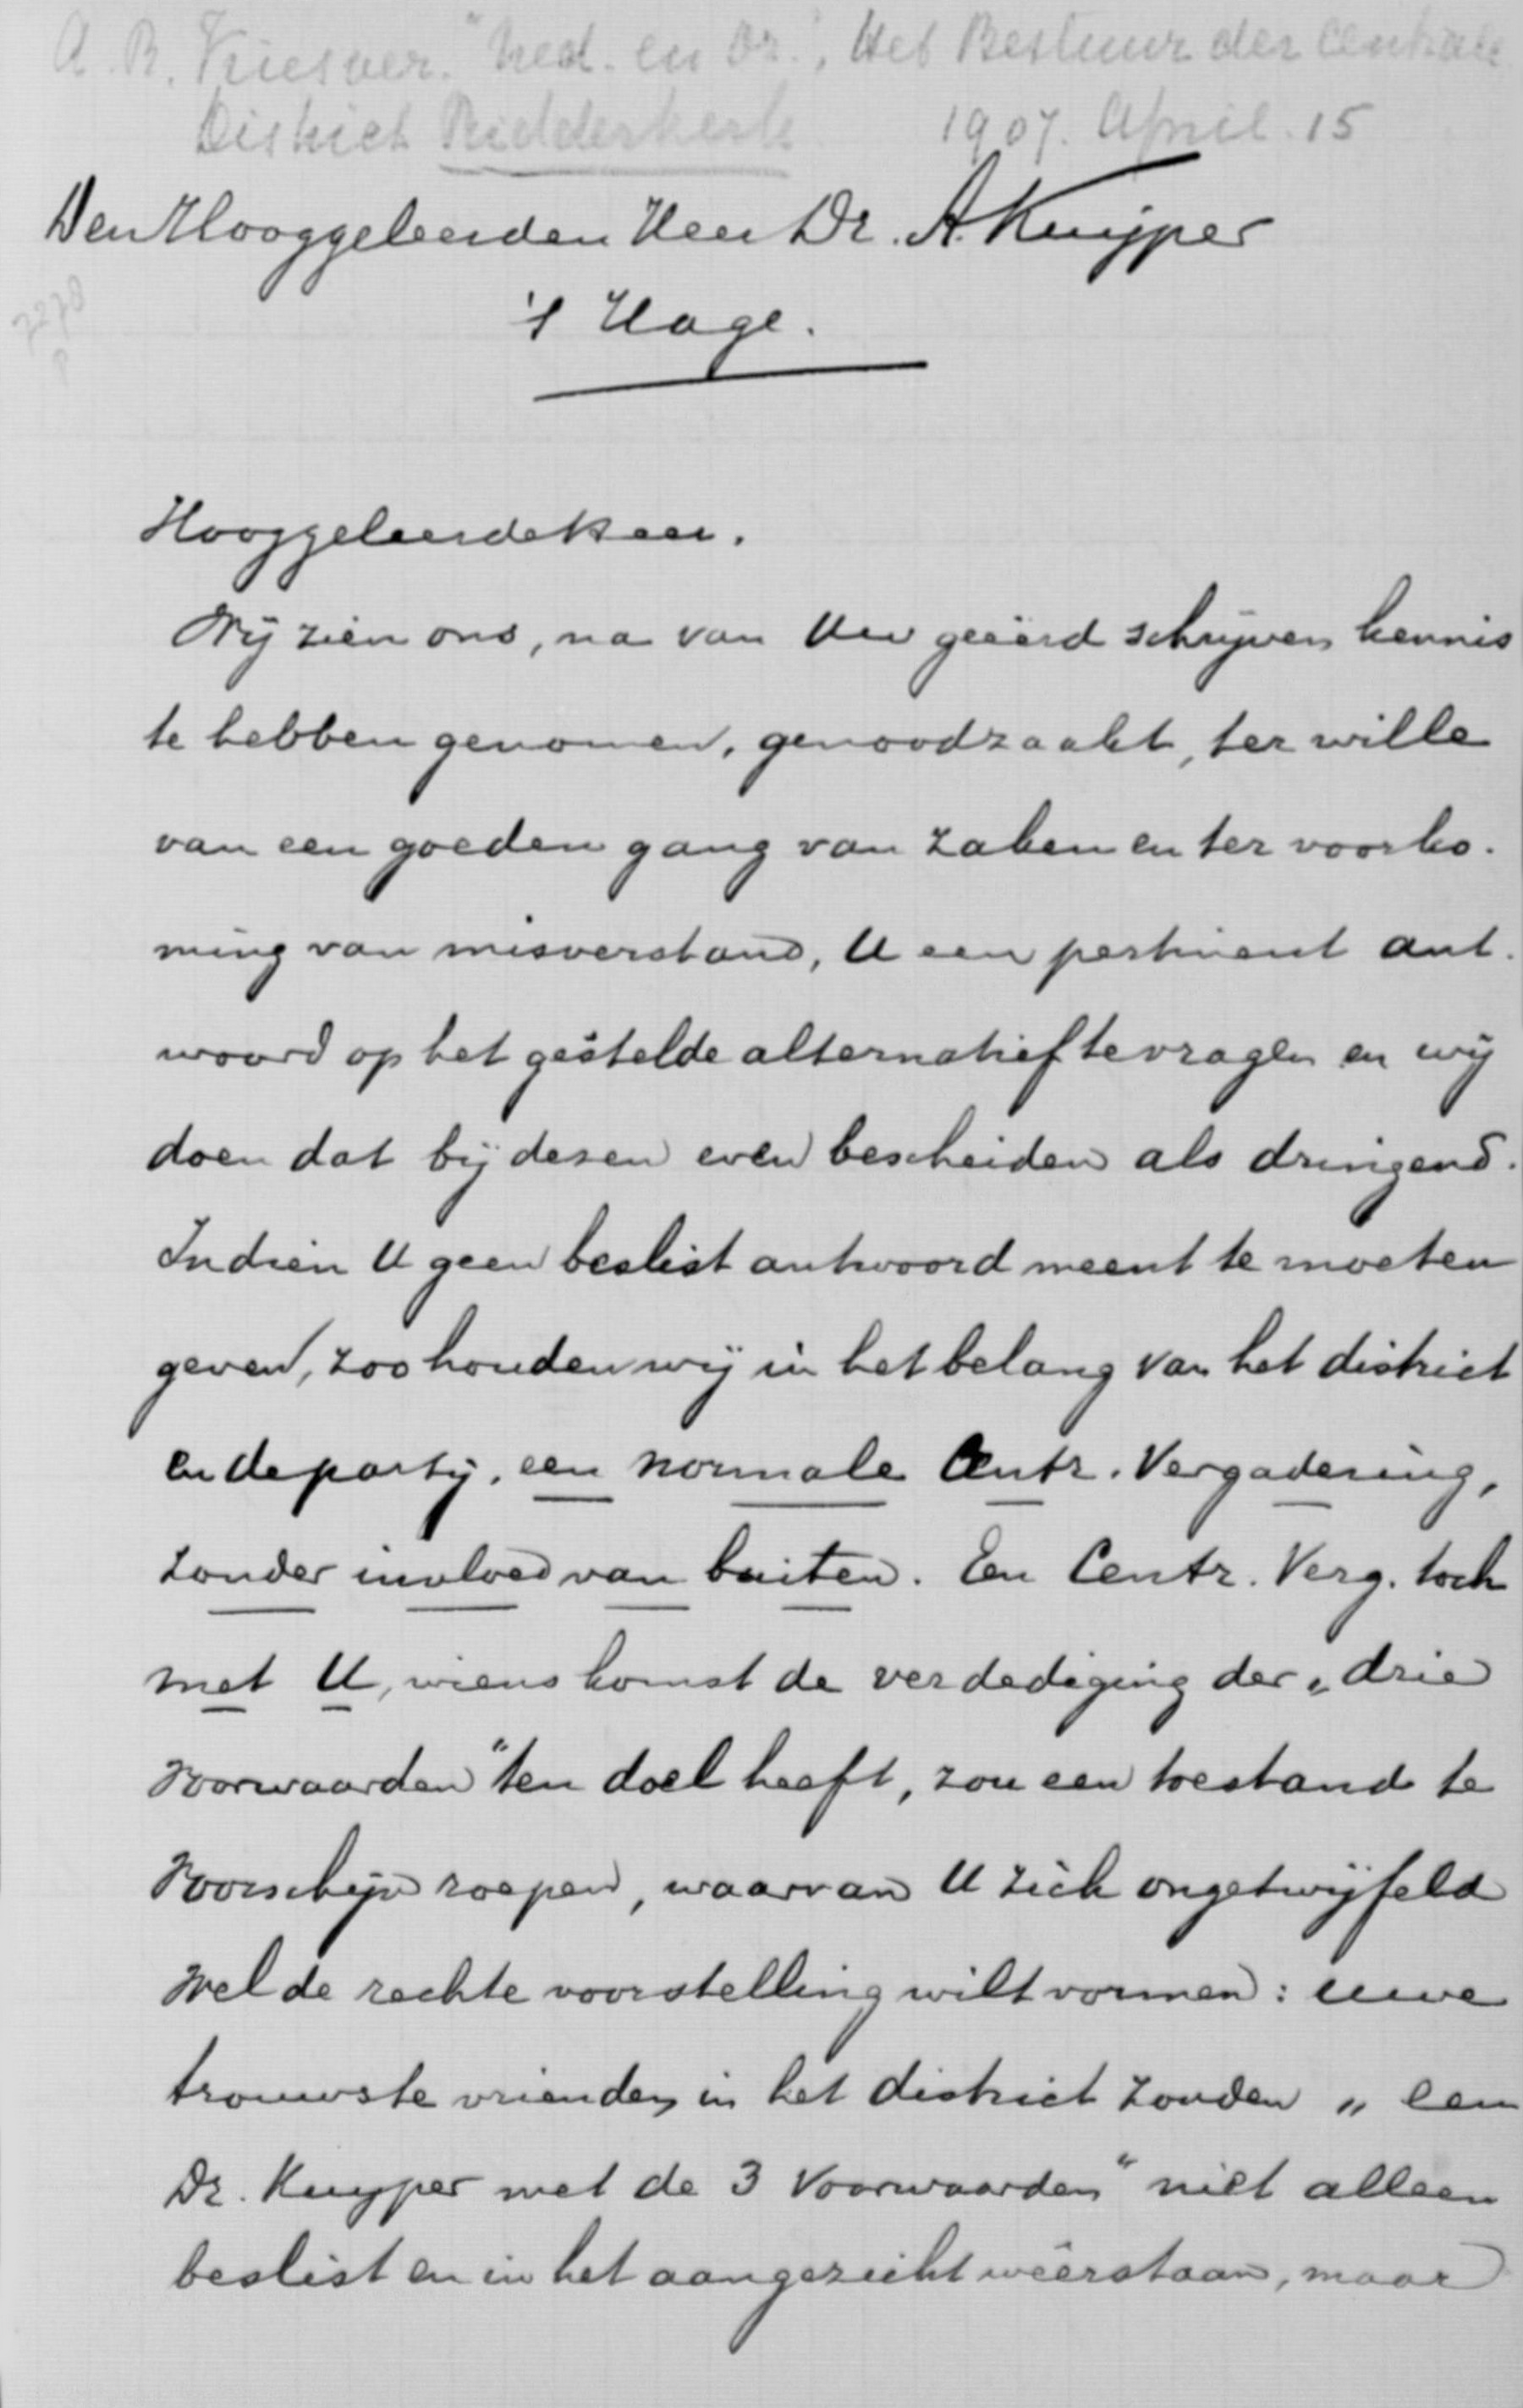 A. R. Kiesver. "Ned. en Or.", Het Bestuur der Centrale
District Ridderkerk 1907. April. 15
Den Hooggeleerden Heer Dr. A. Kuyper
's Hage.
7270
Hooggeleerde Heer.
Wij zien ons, na van Uw geëerd schrijven kennis
te hebben genomen, genoodzaakt, ter wille
van een goeden gang van zaken en ter voorko-
ming van misverstand, U een pertinent ant-
woord op het gestelde alternatief te vragen en wij
doen dat bij dezen even bescheiden als dringend.
Indien U geen beslist antwoord meent te moeten
geven, zoo houden wij in het belang van het district
en de partij, een normale Centr. Vergadering,
zonder invloed van buiten. Een Centr. Verg. toch
met U, wiens komst de verdediging der „drie
voorwaarden" ten doel heeft, zou een toestand te
voorschijn roepen, waarvan U zich ongetwijfeld
wel de rechte voorstelling wilt vormen: uwe
trouwste vrienden in het district zouden „een
Dr. Kuyper met de 3 voorwaarden" niet alleen
beslist en in het aangezicht weêrstaan, maar